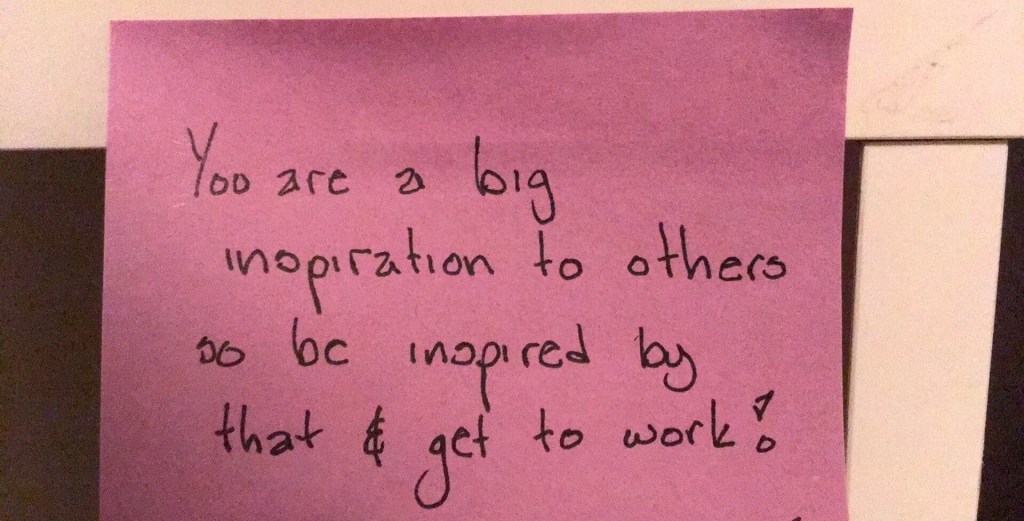 You are a big
inspiration to others
so be inspired by
that & get to work!